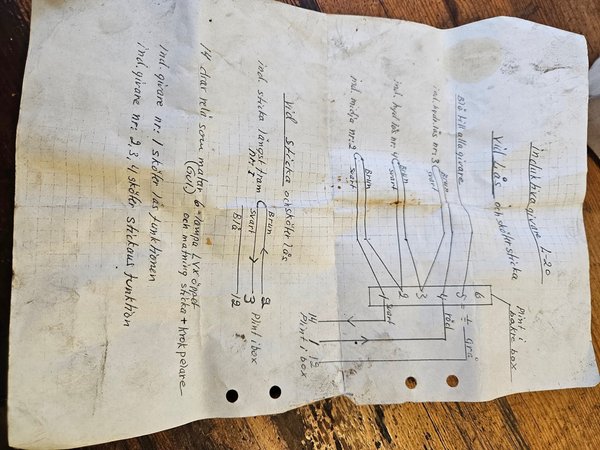 Induktiva givare L-20
Vid Lås och sköter sticka
Blå till alla givare
ind. hyd lås nr. 3
Brun
Svart
ind. hyd lås nr. 4
Brun
Svart
ind. midja nr: 2
Brun
Svart
6
5
4
3
2
1
Plint i
bakre box
÷ grå
röd
svart
14 1 12
Plint i box
Vid sticka och sköter lås
ind. sticka längst fram
nr: 1
Brun 2
Svart 3 Plint i box
Blå 12
14 drar relä som matar 6=lampa LVX öppet
(GUL) och matning sticka + krokpelare
ind. givare nr: 1 sköter lås funktionen
ind. givare nr: 2, 3, 4 sköter stickans funktion